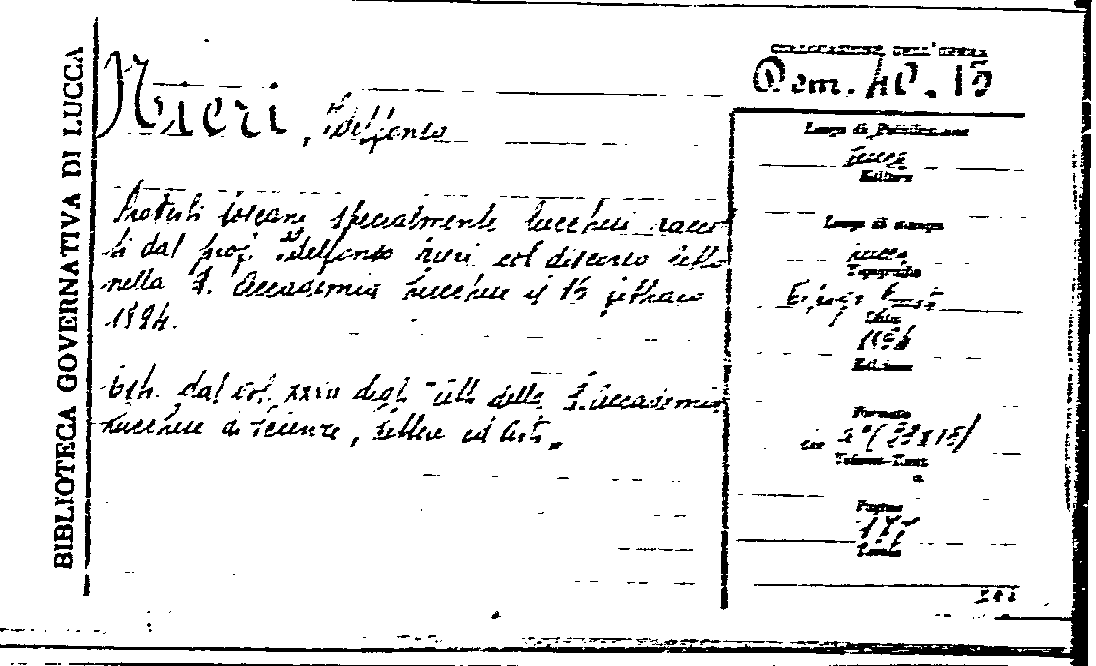 BIBLIOTECA GOVERNATIVA DI LUCCA
COLLOCAZIONE DELL'OPERA
Dem. 40. 15
Nieri, Idelfonso
Proverbi toscani specialmente lucchesi raccol
ti dal prof. Idelfonso Nieri col discorso letto
nella R. Accademia Lucchese il 15 gennaio
1894.
Estr. dal vol. XXVII degli Atti della R. Accademia
Lucchese di Scienze, Lettere ed Arti.
Luogo di Pubblicazione
Lucca
Editore
Luogo di stampa
Lucca
Tipografia
Giusti
Data
Edizione
Formato
in 8°
Pagine